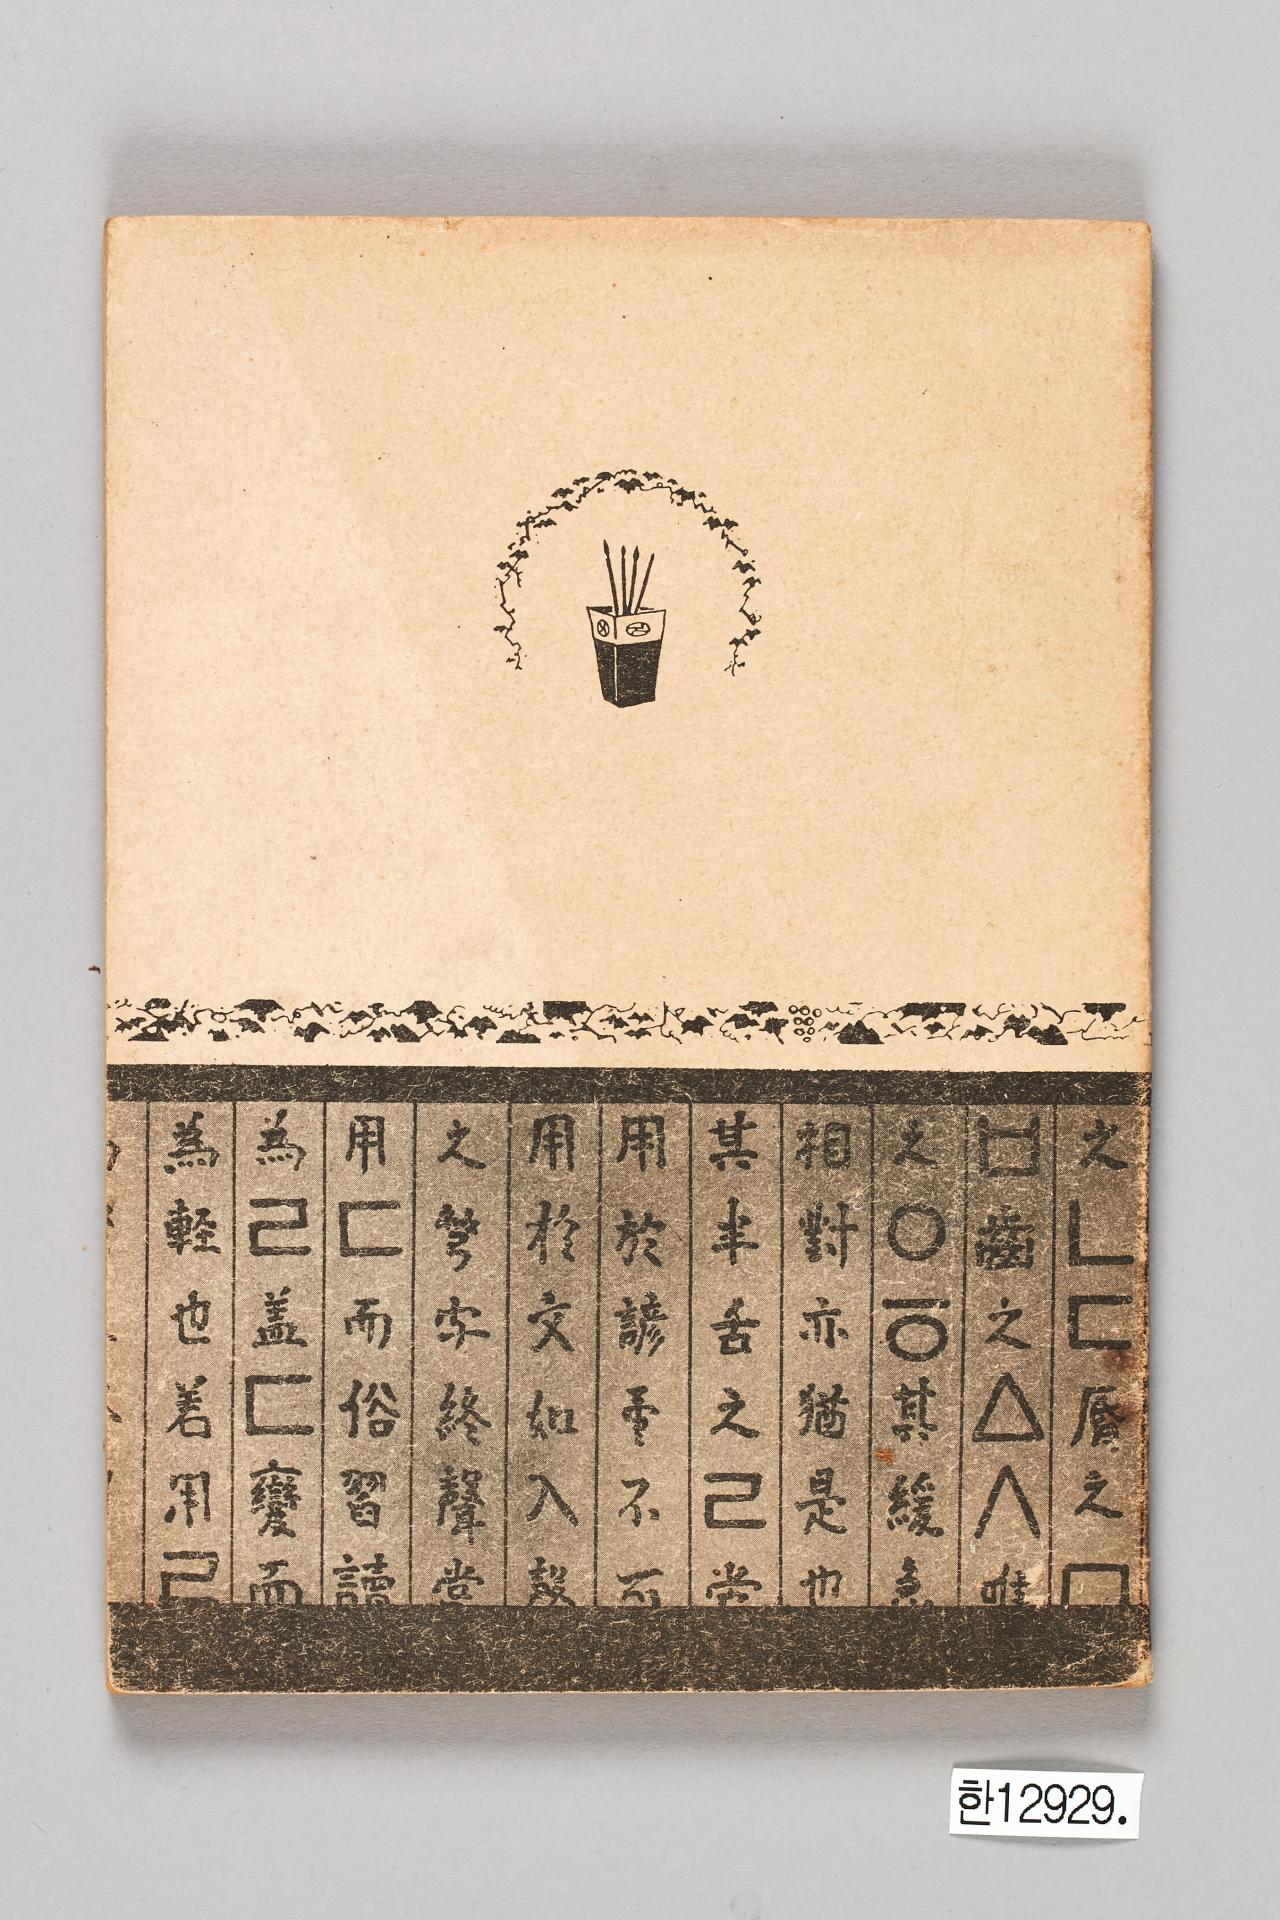 之ㄴㄷ脣之ㅁ
ㅂ齒之ㅿㅅ唯
之ㅇㆆ其緩急
相對亦猶是也
其半舌之ㄹ當
用於諺而不可
用於文如入聲
之彆字終聲當
用ㄷ而俗習讀
為ㄹ盖ㄷ變而
為輕也若用ㄹ
한12929.